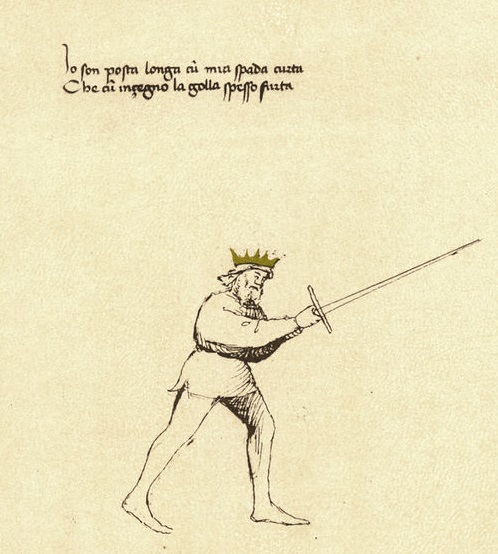 Io son posta longa cū mia spada curta
Che cū inçegno la golla spesso furta